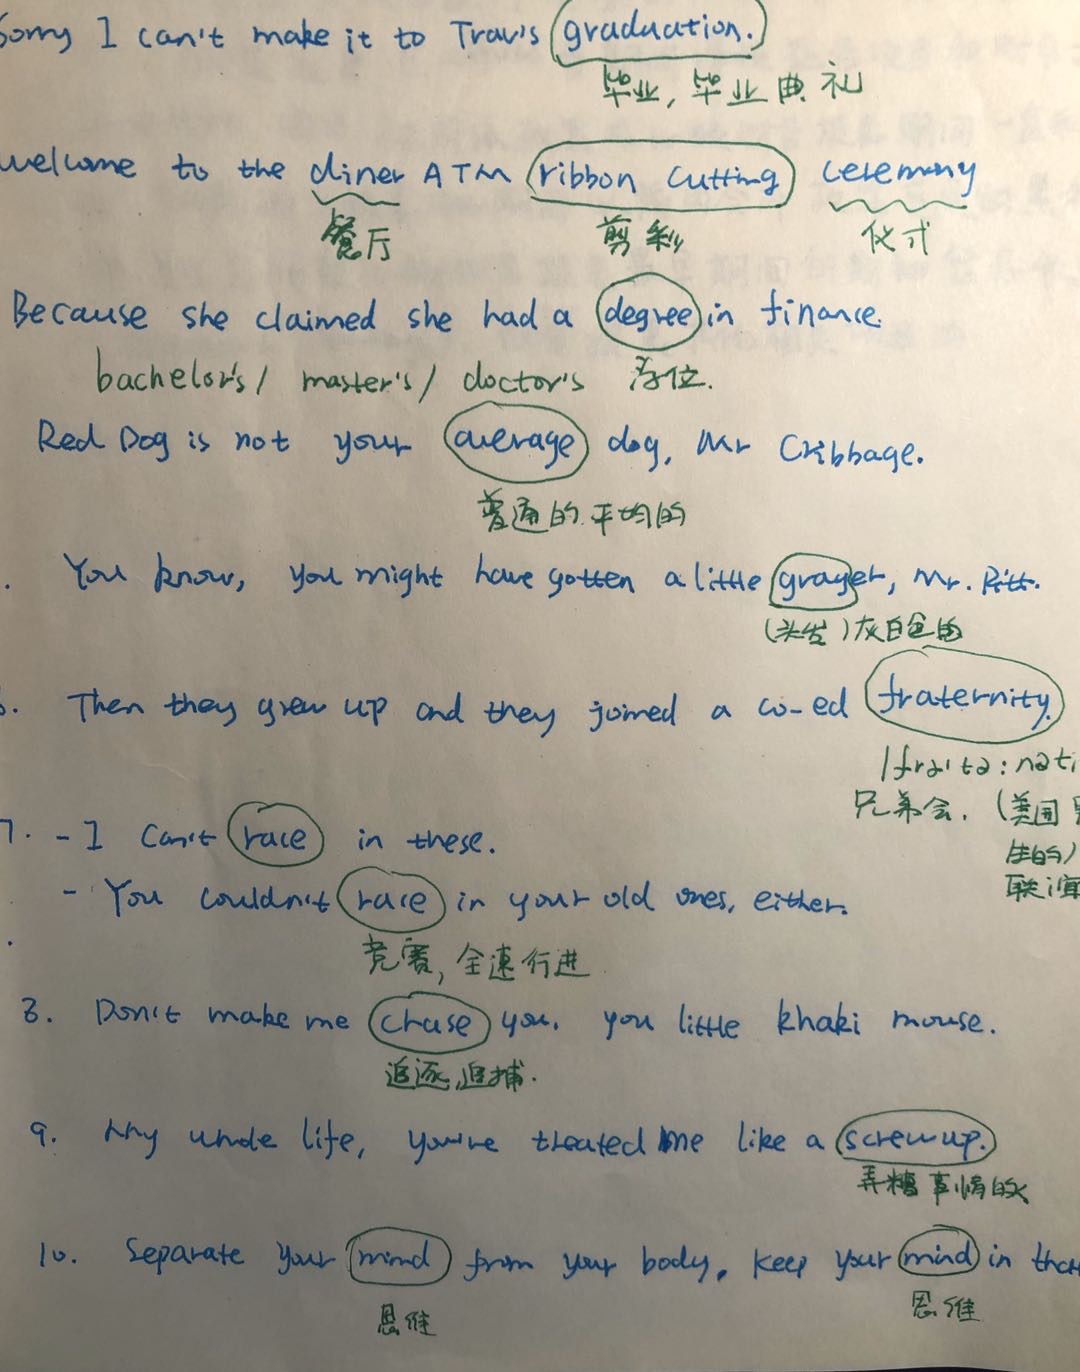 Sorry I can't make it to Trav's graduation.
毕业, 毕业典礼
welcome to the diner ATM ribbon cutting ceremony
餐厅 剪彩 仪式
Because she claimed she had a degree in finance.
bachelor's / master's / doctor's 学位.
Red Dog is not your average dog, Mr Cribbage.
普通的.平均的
. You know, you might have gotten a little grayer, Mr. Pitt.
(头发)灰白色的
6. Then they grew up and they joined a co-ed fraternity.
兄弟会. (美国
生的)
联谊
7. - I can't race in these.
- You couldn't race in your old ones, either.
竞赛, 全速行进
8. Don't make me chase you, you little khaki mouse.
追逐,追捕.
9. My whole life, you've treated me like a screwup.
弄糟事情的人
10. Separate your mind from your body, keep your mind in
思维 思维